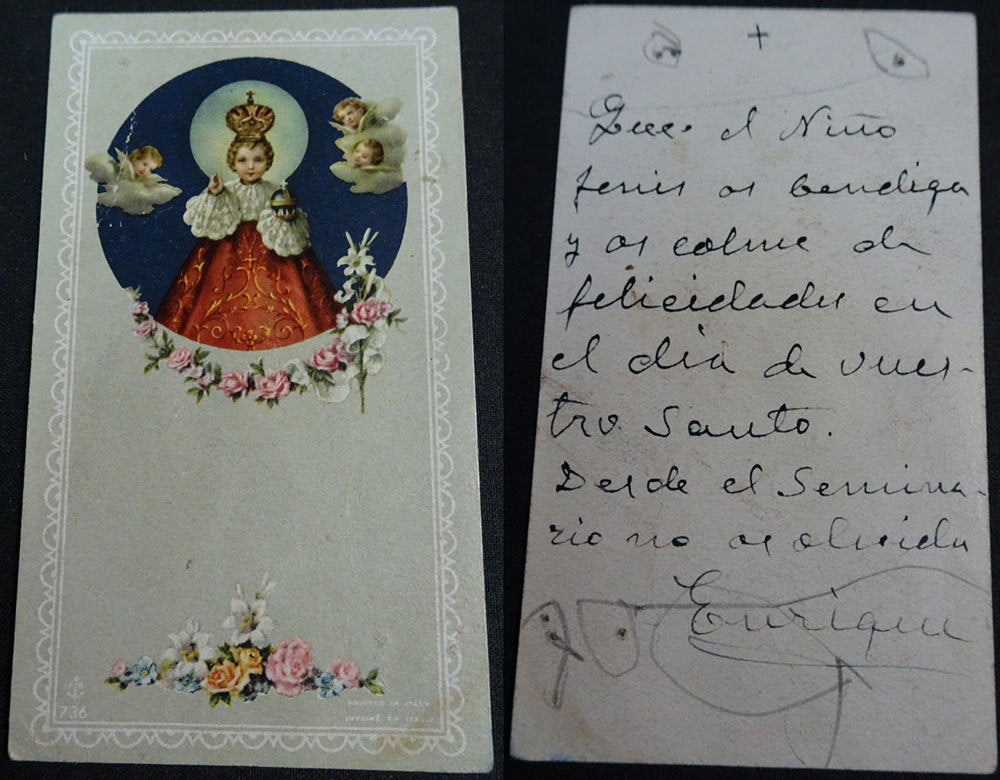 736
PRINTED IN ITALY
IMPRIMÉ EN ITALIE
+
Que el Niño
Jesús os bendiga
y os colme de
felicidades en
el dia de vues-
tro Santo.
Desde el Semina-
rio no os olvida
Enrique